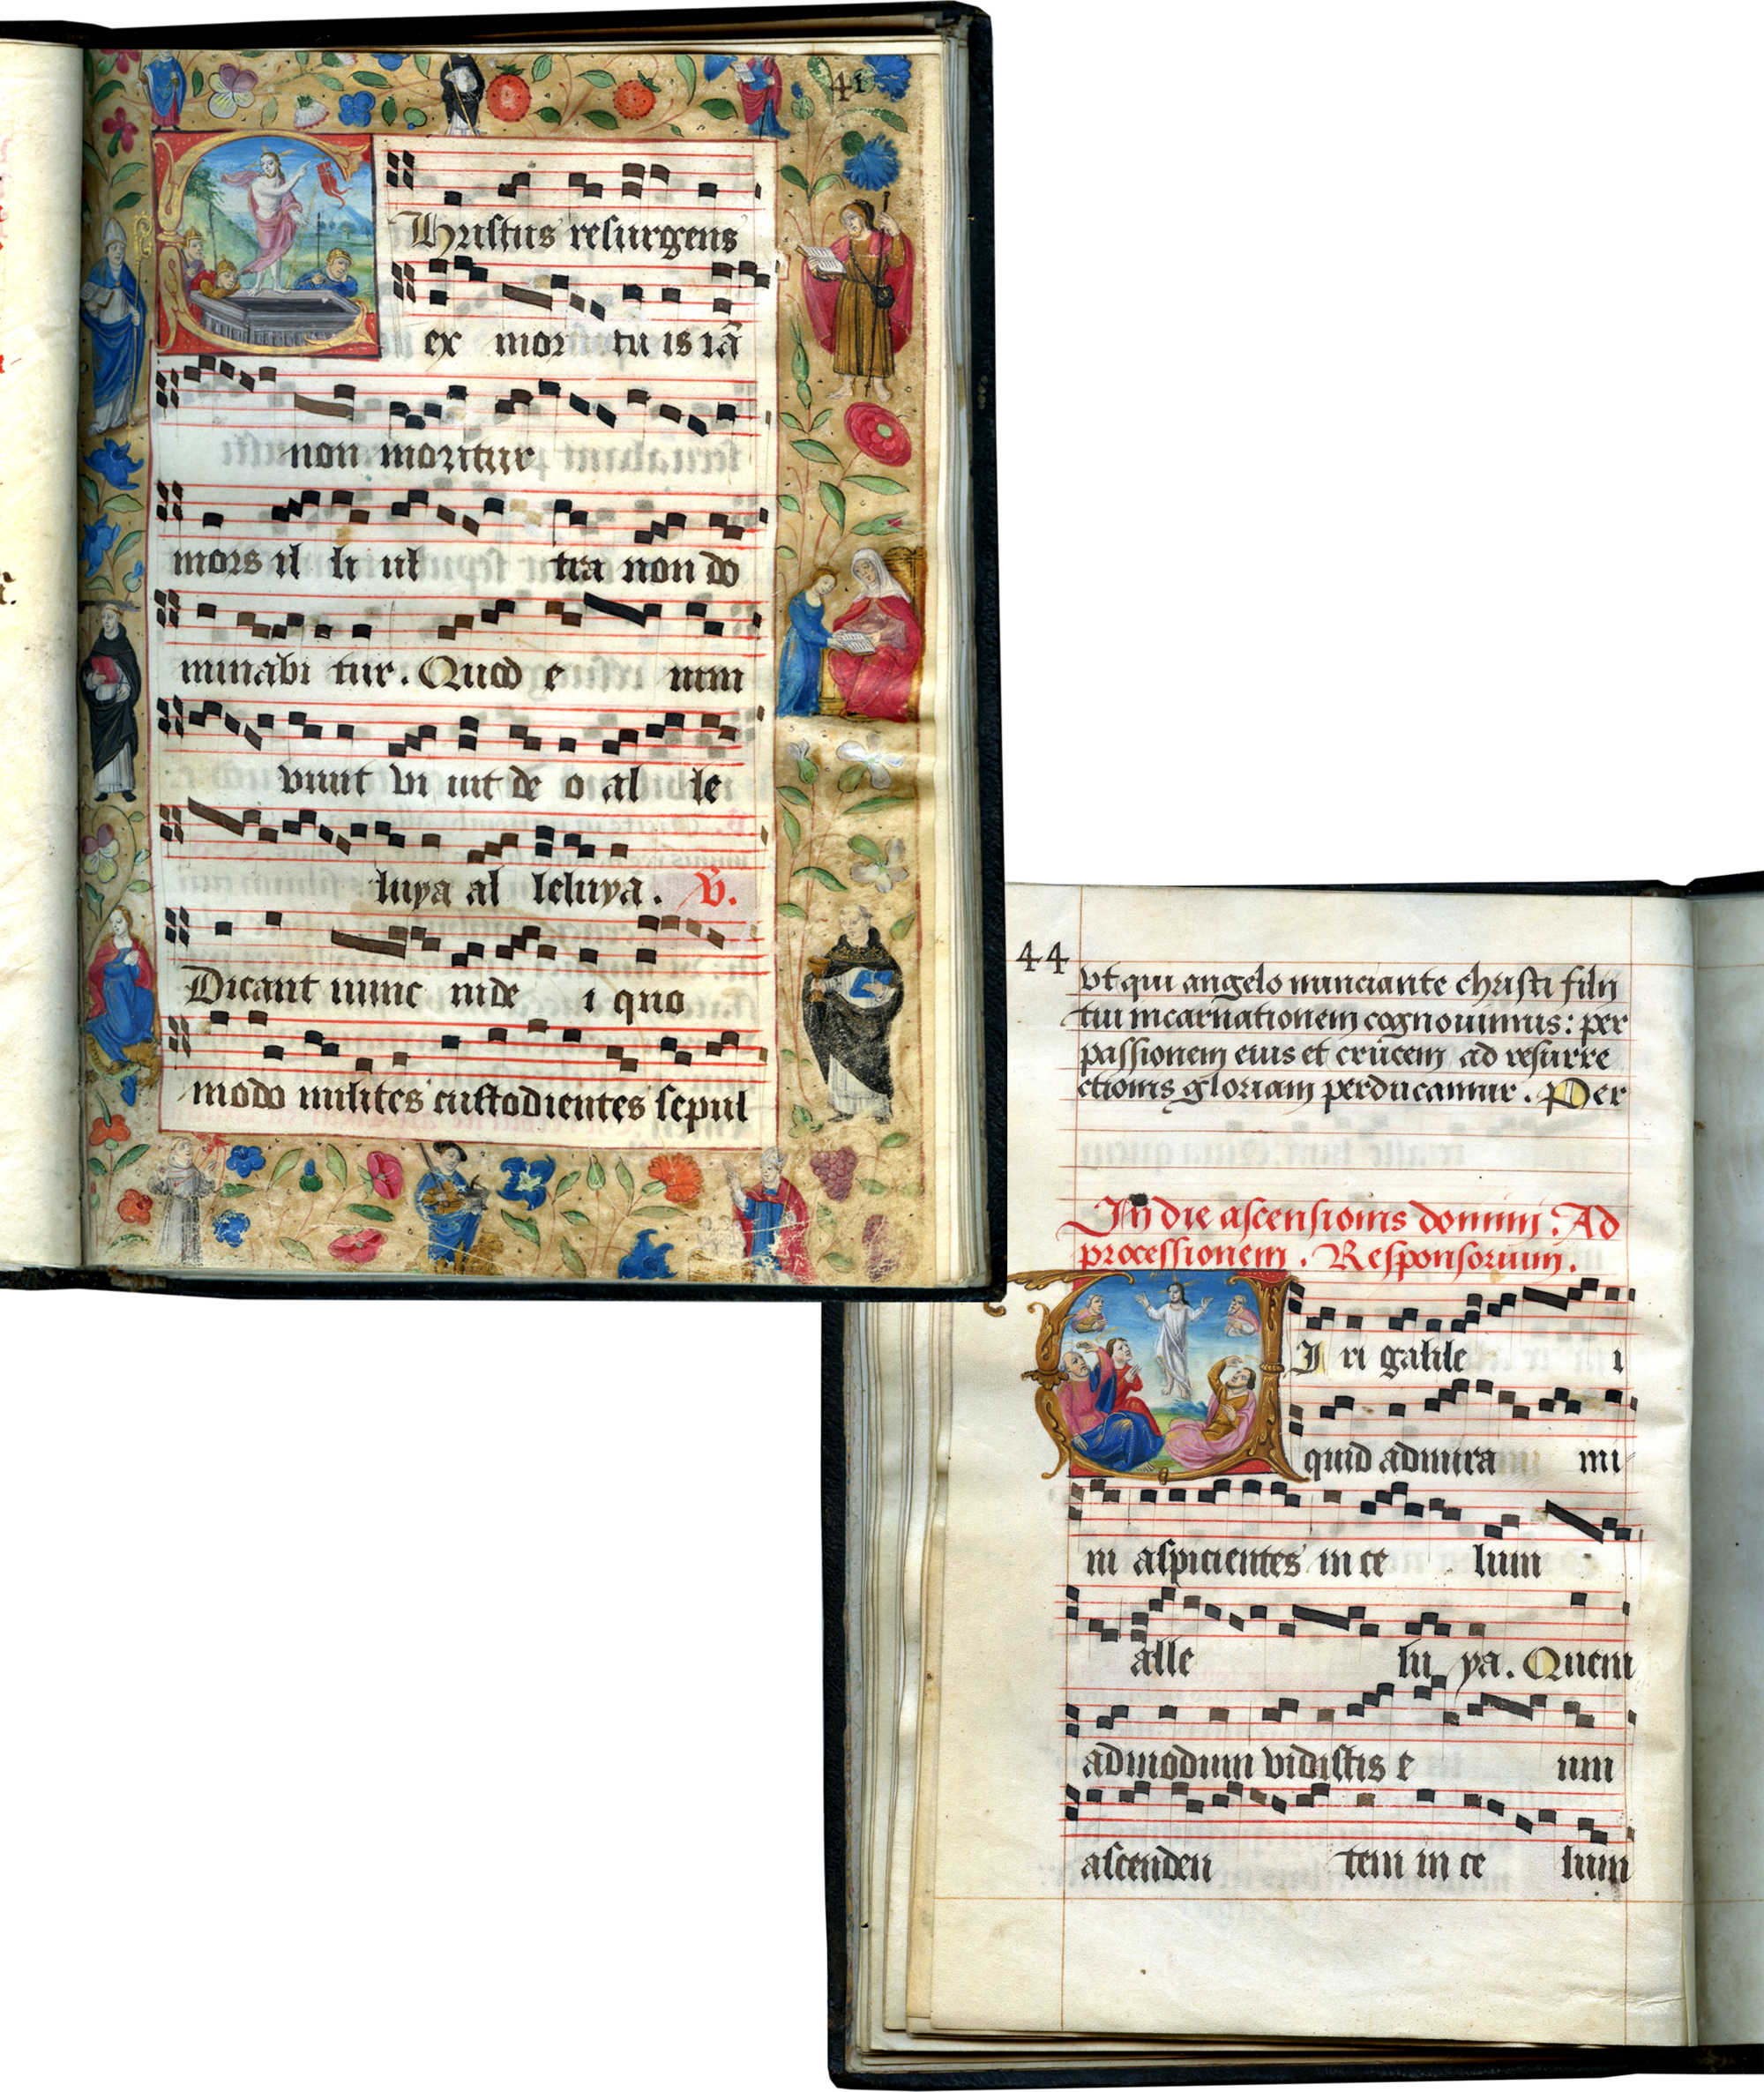 41
Christus resurgens
ex mor tu is iã
non moritur
mors il li ul tra non do
minabi tur. Quod e nim
viuit vi uit de o al le
luya al leluya. V.
Dicant nunc iude i quo
modo milites custodientes sepul
44
vt qui angelo nunciante christi filii
tui incarnationem cognouimus: per
passionem eius et crucem ad resurre
ctionis gloriam perducamur. Per
In die ascensionis domini. Ad
processionem. Responsorium.
UI ri galile i
quid admira mi
ni aspicientes in ce lum
alle lu ya. Quem
admodum vidistis e um
ascenden tem in ce lum